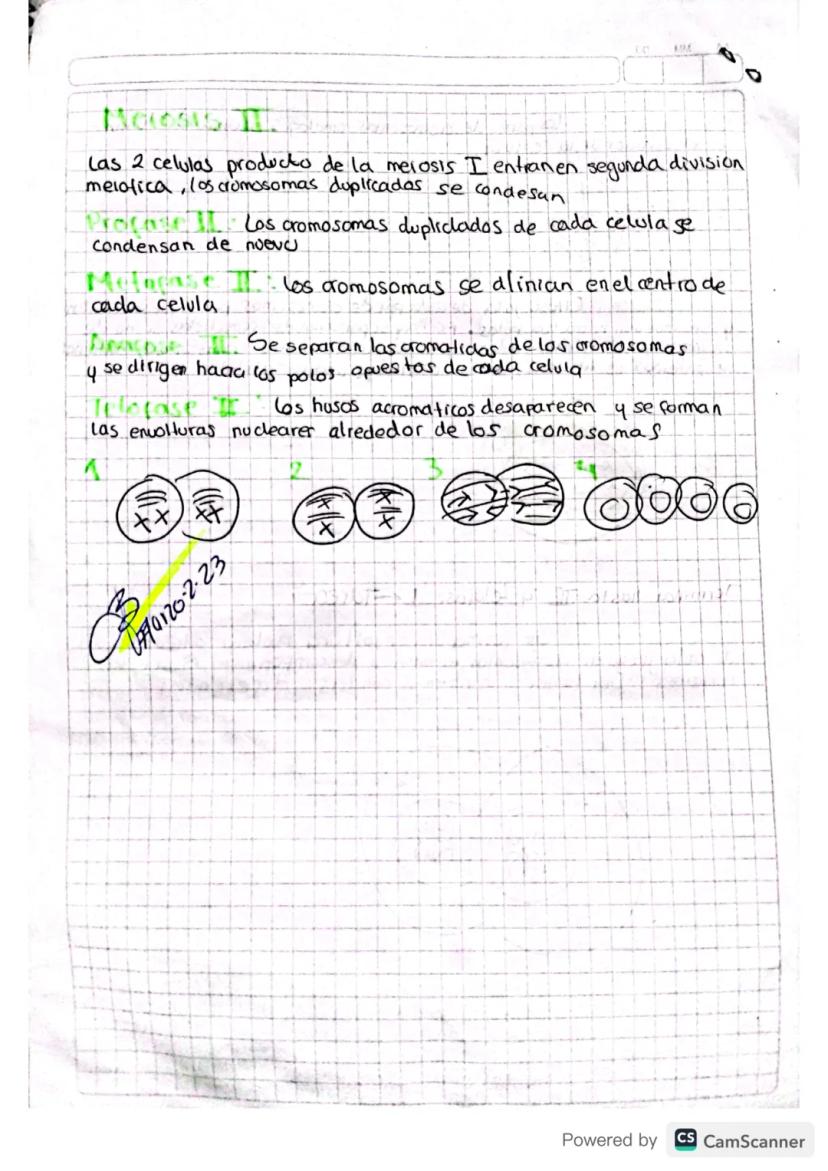 Meiosis II.
Las 2 celulas producto de la meiosis I entran en segunda division
meiotica, los cromosomas duplicados se condesan
Profase II: Los cromosomas duplicldados de cada celula se
condensan de nuevo
Metafase II: Los cromosomas se alinian en el centro de
cada celula.
Anafase II. Se separan las cromatidas de los cromosomas
y se dirigen hacia los polos opuestos de cada celula
Telofase II: Los husos acromaticos desaparecen y se forman
las envolturas nuclearer alrededor de los cromosomas
1 2 3 4
Marzo-2-23
Powered by CS CamScanner